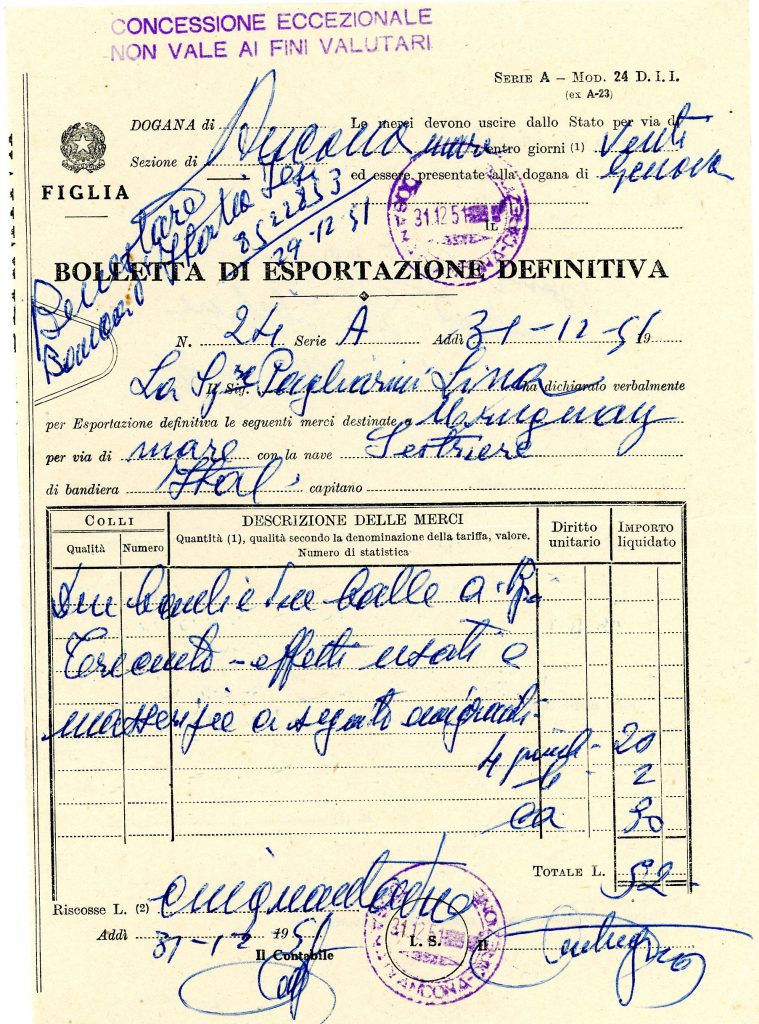 CONCESSIONE ECCEZIONALE
NON VALE AI FINI VALUTARI
SERIE A – MOD. 24 D. I. I.
(ex A-23)
DOGANA di Ancona Le merci devono uscire dallo Stato per via di
Sezione di mare entro giorni (1) Venti
ed essere presentate alla dogana di Genova
FIGLIA
IL
31.12.51
8522853
24-12-51
BOLLETTA DI ESPORTAZIONE DEFINITIVA
N. 24 Serie A Addì 31-12-51 19
La Sg.ra Il Sig. Pagliarini Lina ha dichiarato verbalmente
per Esportazione definitiva le seguenti merci destinate a Uruguay
per via di mare con la nave Sestriere
di bandiera Ital. capitano
COLLI
DESCRIZIONE DELLE MERCI
Diritto unitario
IMPORTO liquidato
Qualità Numero
Quantità (1), qualità secondo la denominazione della tariffa, valore.
Numero di statistica
balle a
effetti usati e
masserizie a seguito emigranti
4 20
2
30
TOTALE L. 52-
Riscosse L. (2) cinquantadue
Addì 31-12 1951
31.12.51
Il Contabile
L. S.
Il